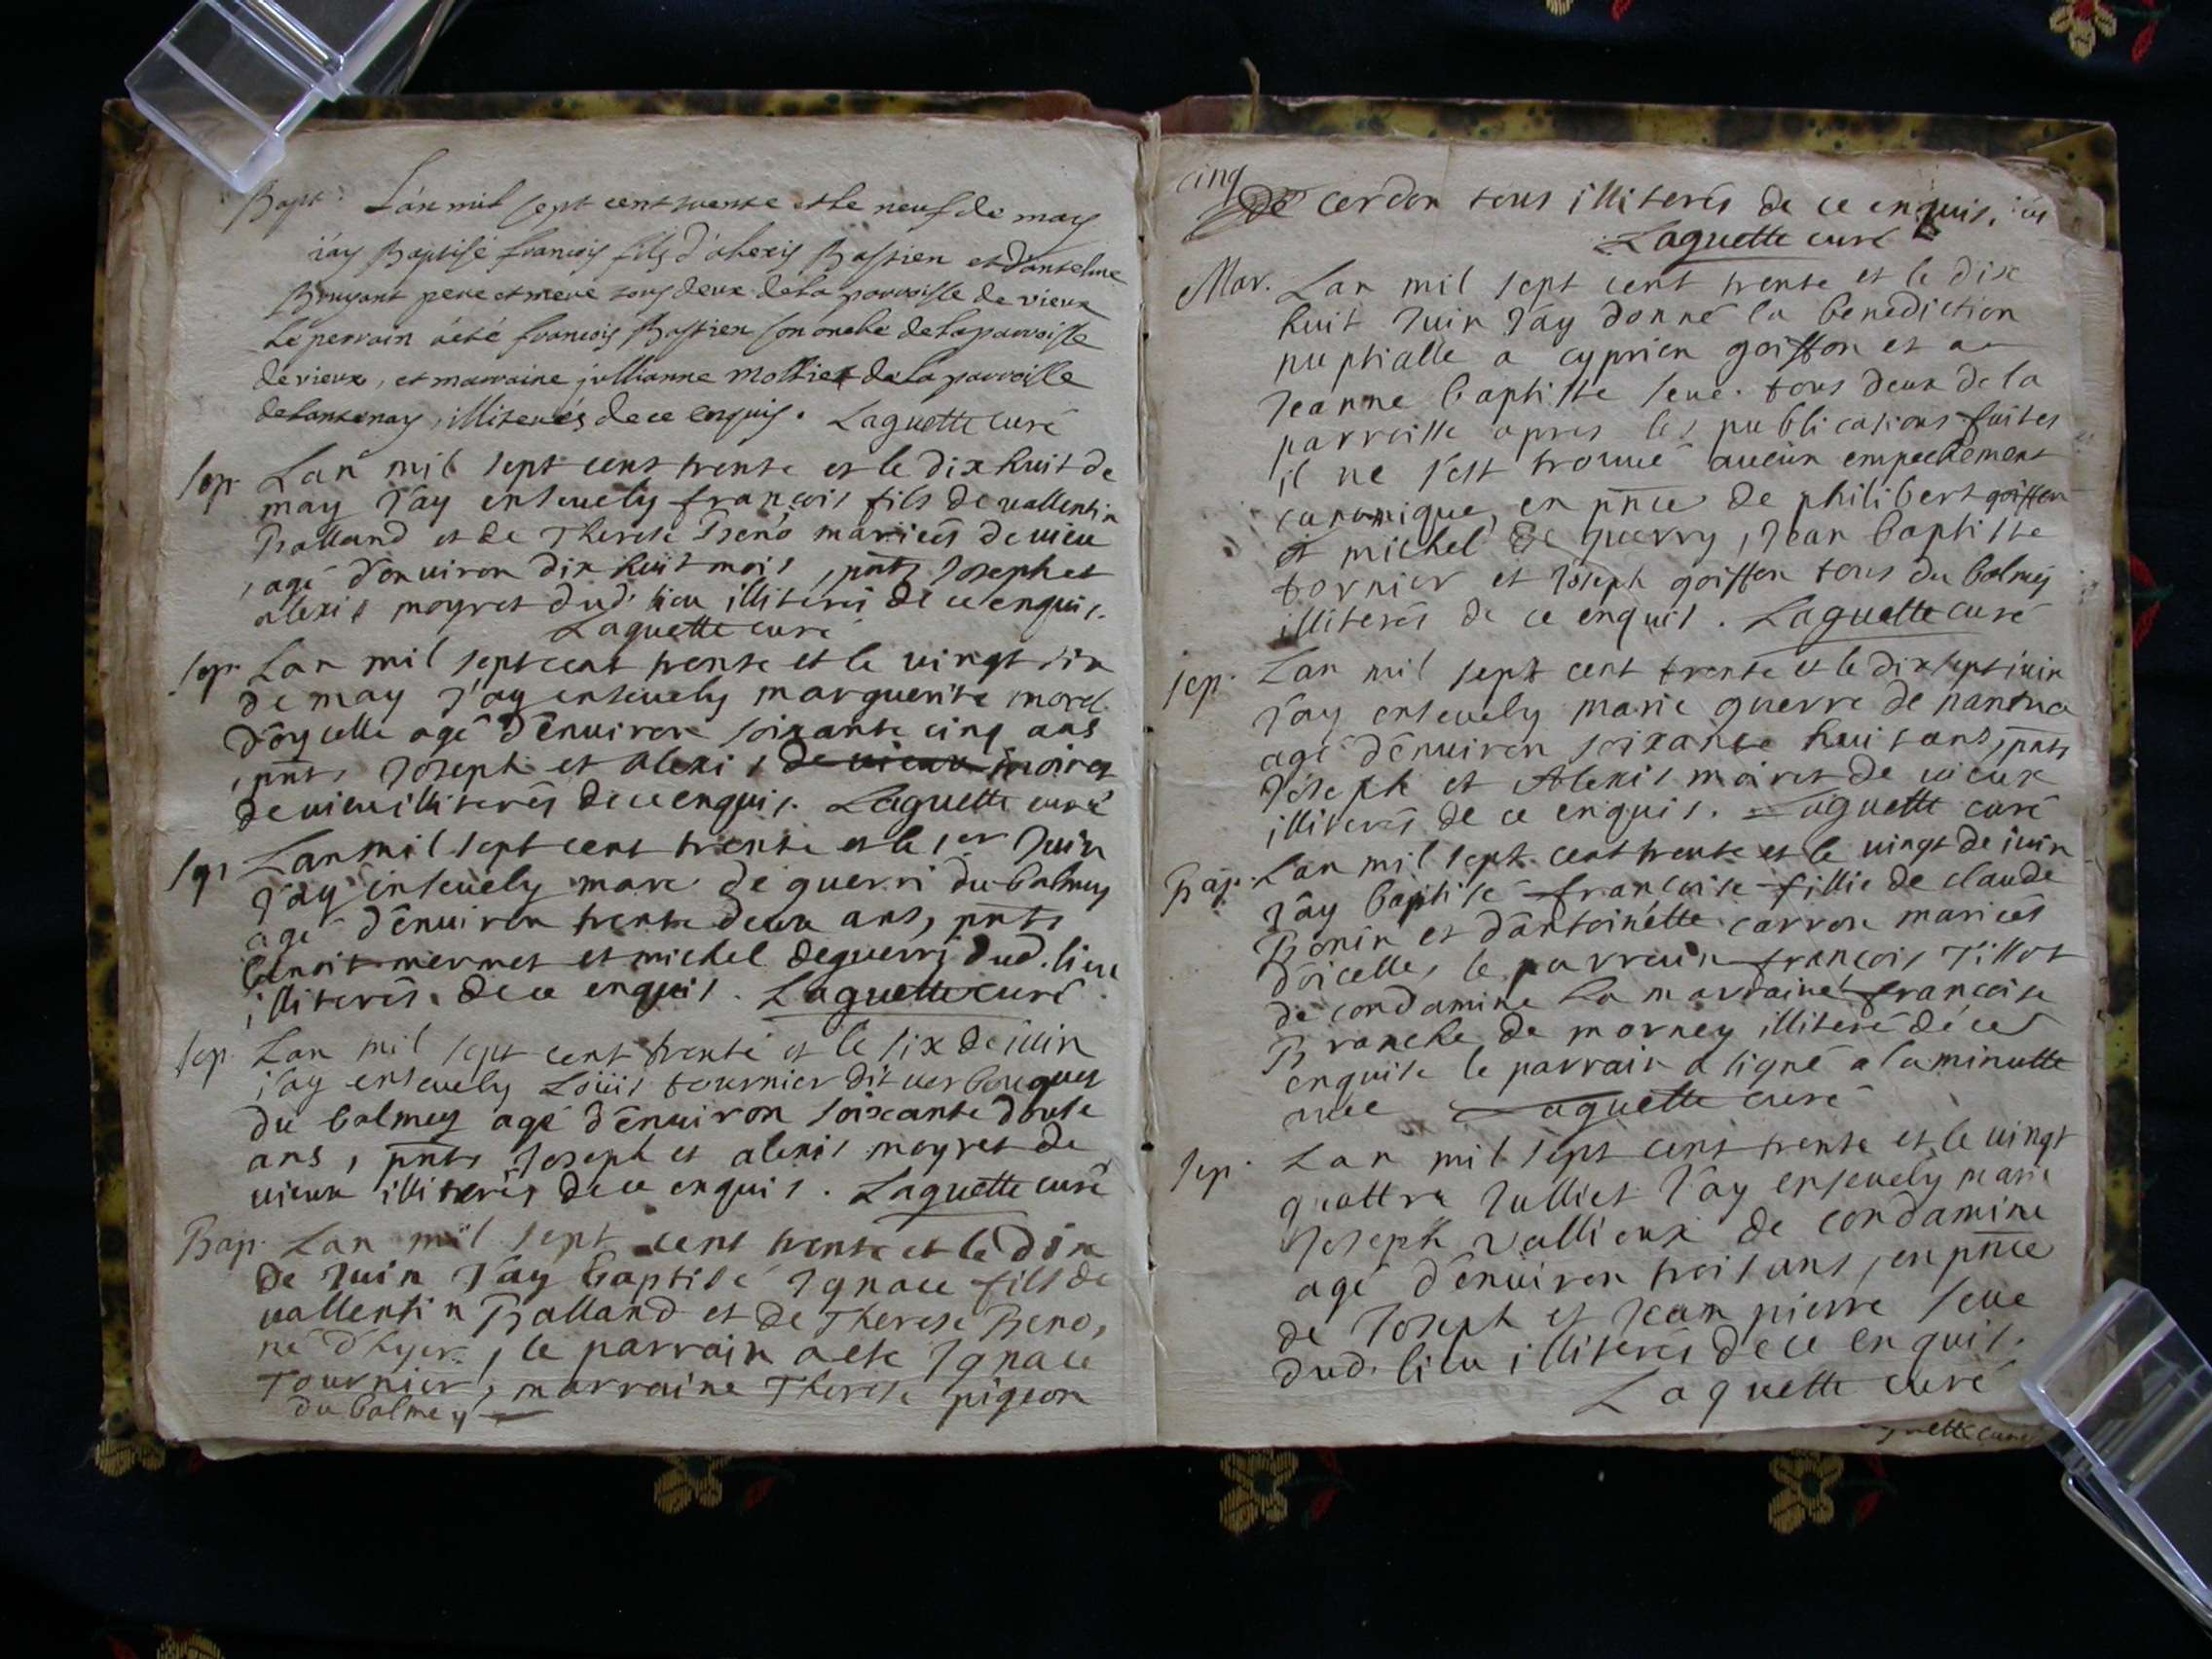 Bapt. Lan mil sept cent trente et le neuf de may
i'ay Baptisé francois fils d'alexis Bastien et d'antelme
Bruyant pere et mere tous deux de la parroisse de vieux
le perrain a été francois Bastien son oncle de la parroisse
de vieux, et marraine jullianne Mollier de la parroisse
de lantenay, illiterés de ce enquis. Laguette curé
Sep. Lan mil sept cent trente et le dix huit de
may J'ay ensevely françois fils de vallentin
Balland et de Therese Beno mariés de vieu
, agé d'environ dix huit mois, pnts Joseph et
alexis moyret dud. lieu illiterés de ce enquis.
Laguette curé
Sep. Lan mil sept cent trente et le vingt six
de may J'ay ensevely marguerite morel
d'oycelle agé d'environ soixante cinq ans
, pnts Joseph et alexis de vieux moiret
de vieu illiterés de ce enquis. Laguette curé
Sep. Lan mil sept cent trente et le 1er Juin
J'ay ensevely marc de guerri du balmey
agé d'environ trente deux ans, pnts
benoit mermet et michel deguerri dud. lieu
illiterés de ce enquis. Laguette curé
Sep. Lan mil sept cent trente et le six de iuin
i'ay ensevely Loüis tournier dit
du balmey agé d'environ soixante douse
ans, pnts Joseph et alexis moyret de
vieux illiterés de ce enquis. Laguette curé
Bap. Lan mil sept cent trente et le dix
de Juin J'ay baptisé Ignace fils de
vallentin Balland et de Therese Beno,
né d'hyer, le parrain a este Ignace
Tournier, marraine Therese pigeon
du balmey
cinq
de cerdon tous illiterés de ce enquis,
Laguette curé
Mar. Lan mil sept cent trente et le dix
huit Juin J'ay donné la benediction
nuptialle a cyprien goiffon et a
Jeanne baptiste seve tous deux de la
parroisse apres les publications faites
il ne s'est trouvé aucun empechement
canonique, en pnce de philibert goiffon
et michel de guerry, Jean baptiste
tornier et Joseph goiffon tous du balmey
illiterés de ce enquis. Laguette curé
Sep. Lan mil sept cent trente et le dix sept iuin
J'ay ensevely marie guerre de nantua
agé d'environ soixante huit ans, pnts
Joseph et Alexis moiret de vieux
illiterés de ce enquis. Laguette curé
Bap. Lan mil sept cent trente et le vingt de iuin
J'ay baptisé françoise fillie de claude
Bonin et d'antoinette carron mariés
d'oicelle, le parrain françois Tillot
de condamine la marraine françoise
Branche de morney illiteré de ce
enquise le parrain a signé a la minutte
Laguette curé
Sep. Lan mil sept cent trente et le vingt
quattre Julliet J'ay ensevely marie
Joseph vallieux de condamine
agé d'environ trois ans, en pnce
de Joseph et Jean pierre seve
dud. lieu illiterés de ce enquis.
Laguette curé